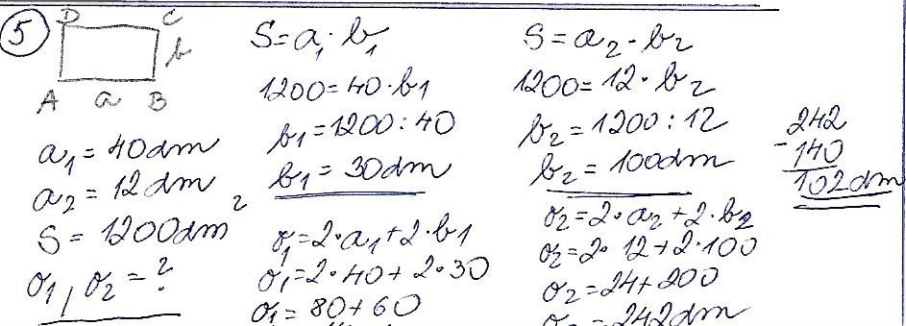 5
D C
b
A a B
a₁ = 40dm
a₂ = 12dm
S = 1200dm²
o₁, o₂ = ?
S = a₁ · b₁
1200 = 40 · b₁
b₁ = 1200 : 40
b₁ = 30dm
o₁ = 2 · a₁ + 2 · b₁
o₁ = 2 · 40 + 2 · 30
o₁ = 80 + 60
S = a₂ · b₂
1200 = 12 · b₂
b₂ = 1200 : 12
b₂ = 100dm
o₂ = 2 · a₂ + 2 · b₂
o₂ = 2 · 12 + 2 · 100
o₂ = 24 + 200
o₂ = 242dm
242
- 140
102dm